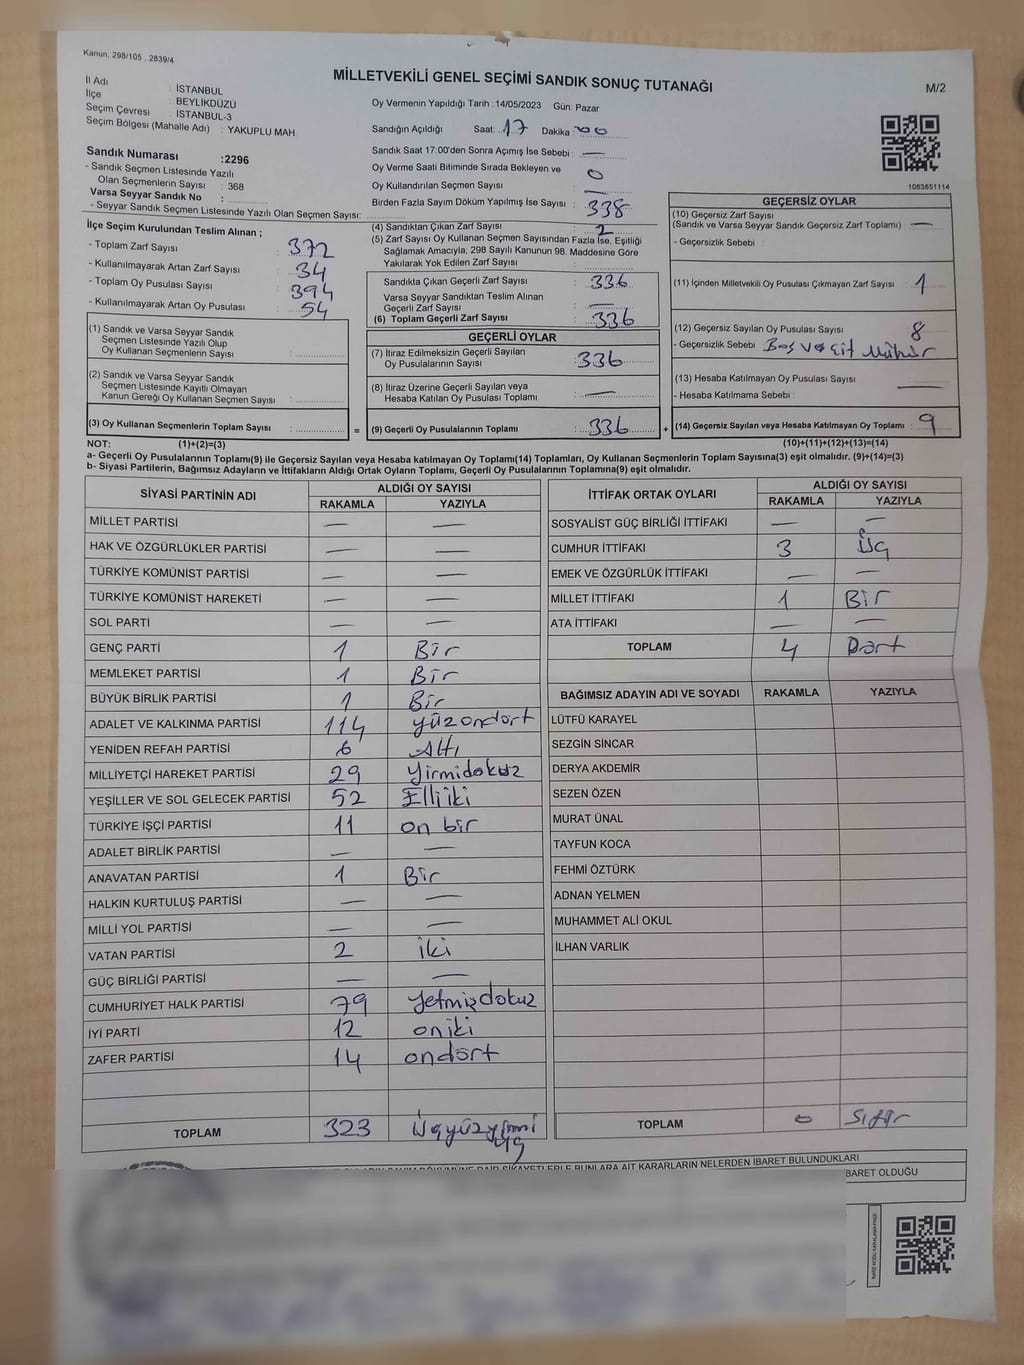 Kanun, 298/105 , 2839/4
MİLLETVEKİLİ GENEL SEÇİMİ SANDIK SONUÇ TUTANAĞI
M/2
İl Adı : İSTANBUL
İlçe : BEYLİKDÜZÜ
Seçim Çevresi : İSTANBUL-3
Seçim Bölgesi (Mahalle Adı) : YAKUPLU MAH
Sandık Numarası :2296
- Sandık Seçmen Listesinde Yazılı
Olan Seçmenlerin Sayısı : 368
Varsa Seyyar Sandık No :
- Seyyar Sandık Seçmen Listesinde Yazılı Olan Seçmen Sayısı:
Oy Vermenin Yapıldığı Tarih :14/05/2023 Gün: Pazar
Sandığın Açıldığı Saat: 17 Dakika : 00
Sandık Saat 17:00'den Sonra Açımış İse Sebebi : —
Oy Verme Saati Bitiminde Sırada Bekleyen ve
Oy Kullandırılan Seçmen Sayısı : 0
Birden Fazla Sayım Döküm Yapılmış İse Sayısı : —
1083651114
İlçe Seçim Kurulundan Teslim Alınan ;
- Toplam Zarf Sayısı : 372
- Kullanılmayarak Artan Zarf Sayısı : 34
- Toplam Oy Pusulası Sayısı : 394
- Kullanılmayarak Artan Oy Pusulası : 54
(1) Sandık ve Varsa Seyyar Sandık
Seçmen Listesinde Yazılı Olup
Oy Kullanan Seçmenlerin Sayısı :
(2) Sandık ve Varsa Seyyar Sandık
Seçmen Listesinde Kayıtlı Olmayan
Kanun Gereği Oy Kullanan Seçmen Sayısı :
(3) Oy Kullanan Seçmenlerin Toplam Sayısı : =
(4) Sandıktan Çıkan Zarf Sayısı : 338
(5) Zarf Sayısı Oy Kullanan Seçmen Sayısından Fazla İse, Eşitliği
Sağlamak Amacıyla; 298 Sayılı Kanunun 98. Maddesine Göre
Yakılarak Yok Edilen Zarf Sayısı : 2
Sandıkta Çıkan Geçerli Zarf Sayısı : 336
Varsa Seyyar Sandıktan Teslim Alınan
Geçerli Zarf Sayısı : —
(6) Toplam Geçerli Zarf Sayısı : 336
GEÇERLİ OYLAR
(7) İtiraz Edilmeksizin Geçerli Sayılan
Oy Pusulalarının Sayısı : 336
(8) İtiraz Üzerine Geçerli Sayılan veya
Hesaba Katılan Oy Pusulası Toplamı : —
(9) Geçerli Oy Pusulalarının Toplamı : 336 +
GEÇERSİZ OYLAR
(10) Geçersiz Zarf Sayısı
(Sandık ve Varsa Seyyar Sandık Geçersiz Zarf Toplamı) : —
- Geçersizlik Sebebi :
(11) İçinden Milletvekili Oy Pusulası Çıkmayan Zarf Sayısı : 1
(12) Geçersiz Sayılan Oy Pusulası Sayısı : 8
- Geçersizlik Sebebi : Boş ve Çift Mühür
(13) Hesaba Katılmayan Oy Pusulası Sayısı : —
- Hesaba Katılmama Sebebi :
(14) Geçersiz Sayılan veya Hesaba Katılmayan Oy Toplamı : 9
NOT: (1)+(2)=(3) (10)+(11)+(12)+(13)=(14)
a- Geçerli Oy Pusulalarının Toplamı(9) ile Geçersiz Sayılan veya Hesaba katılmayan Oy Toplamı(14) Toplamları, Oy Kullanan Seçmenlerin Toplam Sayısına(3) eşit olmalıdır. (9)+(14)=(3)
b- Siyasi Partilerin, Bağımsız Adayların ve İttifakların Aldığı Ortak Oyların Toplamı, Geçerli Oy Pusulalarının Toplamına(9) eşit olmalıdır.
SİYASİ PARTİNİN ADI ALDIĞI OY SAYISI
RAKAMLA YAZIYLA
MİLLET PARTİSİ — —
HAK VE ÖZGÜRLÜKLER PARTİSİ — —
TÜRKİYE KOMÜNİST PARTİSİ — —
TÜRKİYE KOMÜNİST HAREKETİ — —
SOL PARTİ — —
GENÇ PARTİ 1 Bir
MEMLEKET PARTİSİ 1 Bir
BÜYÜK BİRLİK PARTİSİ 1 Bir
ADALET VE KALKINMA PARTİSİ 114 yüzondört
YENİDEN REFAH PARTİSİ 6 Altı
MİLLİYETÇİ HAREKET PARTİSİ 29 Yirmidokuz
YEŞİLLER VE SOL GELECEK PARTİSİ 52 Elliiki
TÜRKİYE İŞÇİ PARTİSİ 11 on bir
ADALET BİRLİK PARTİSİ — —
ANAVATAN PARTİSİ 1 Bir
HALKIN KURTULUŞ PARTİSİ — —
MİLLİ YOL PARTİSİ — —
VATAN PARTİSİ 2 iki
GÜÇ BİRLİĞİ PARTİSİ — —
CUMHURİYET HALK PARTİSİ 79 Yetmişdokuz
İYİ PARTİ 12 oniki
ZAFER PARTİSİ 14 ondört
TOPLAM 323 Üçyüzyirmi
üç
İTTİFAK ORTAK OYLARI ALDIĞI OY SAYISI
RAKAMLA YAZIYLA
SOSYALİST GÜÇ BİRLİĞİ İTTİFAKI — —
CUMHUR İTTİFAKI 3 Üç
EMEK VE ÖZGÜRLÜK İTTİFAKI — —
MİLLET İTTİFAKI 1 Bir
ATA İTTİFAKI — —
TOPLAM 4 Dört
BAĞIMSIZ ADAYIN ADI VE SOYADI RAKAMLA YAZIYLA
LÜTFÜ KARAYEL
SEZGİN SİNCAR
DERYA AKDEMİR
SEZEN ÖZEN
MURAT ÜNAL
TAYFUN KOCA
FEHMİ ÖZTÜRK
ADNAN YELMEN
MUHAMMET ALİ OKUL
İLHAN VARLIK
TOPLAM 0 Sıfır
ŞİKAYETLERLE BUNLARA AİT KARARLARIN NELERDEN İBARET BULUNDUKLARI
BARET OLDUĞU